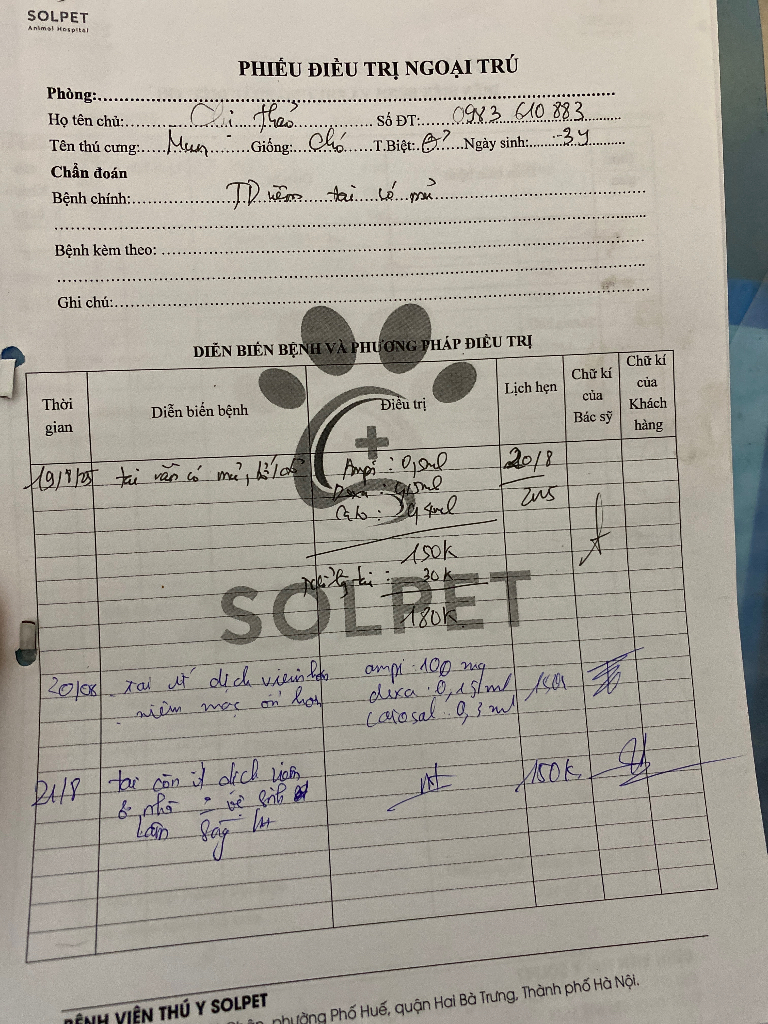 SOLPET
Animal Hospital
PHIẾU ĐIỀU TRỊ NGOẠI TRÚ
Phòng:
Họ tên chủ: Chị Thảo Số ĐT: 0983 610 883
Tên thú cưng: Mun Giống: Chó T.Biệt: Ngày sinh: 3y
Chẩn đoán
Bệnh chính: TD viêm tai có mủ
Bệnh kèm theo:
Ghi chú:
DIỄN BIẾN BỆNH VÀ PHƯƠNG PHÁP ĐIỀU TRỊ
Thời gian Diễn biến bệnh Điều trị Lịch hẹn Chữ kí của Bác sỹ Chữ kí của Khách hàng
19/8/25 tai vẫn có mủ, Ampi : 0,5ml 20/8
Dexa : 0,5ml
Cato : 0,4ml
150K
tai : 30K
180K
SOLPET
20/08 - Tai ít dịch viêm hơn ampi 100 mg
- niêm mạc ổn hơn dexa 0,15ml
catosal 0,3 ml
21/8 tai còn ít dịch viêm 150K
vệ sinh
BỆNH VIỆN THÚ Y SOLPET
phường Phố Huế, quận Hai Bà Trưng, Thành phố Hà Nội.